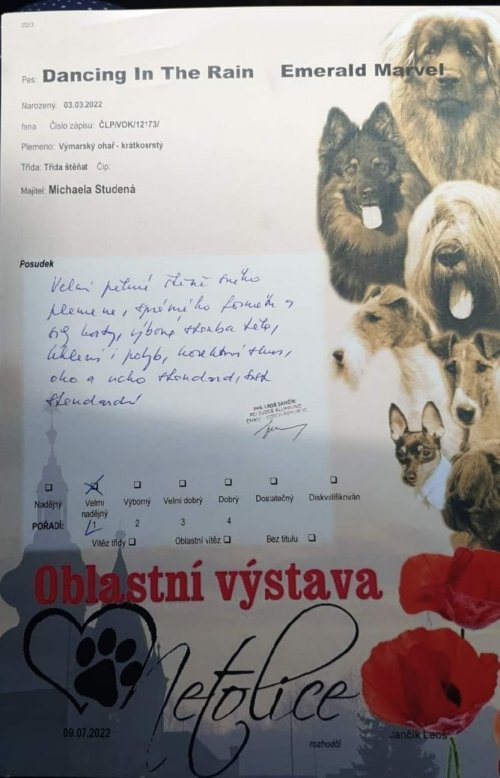 Pes: Dancing In The Rain Emerald Marvel
Narozený: 03.03.2022
fena Číslo zápisu: ČLP/VOK/12173/
Plemeno: Výmarský ohař - krátkosrstý
Třída: Třída štěňat Čip:
Majitel: Michaela Studená
Posudek
Velmi pěkné štěně svého
plemene, správného formátu a
síly kosty, výborná stavba těla,
úhlení i pohyb, korektní skus,
oko a ucho standard, srst
standardní
ING. LEOŠ JANČÍK
FCI JUDGE ALLROUND
ČMKU - CZECH REPUBLIC
Nadějný Velmi nadějný Výborný Velmi dobrý Dobrý Dostatečný Diskvalifikován
POŘADÍ: 1 2 3 4
Vítěz třídy Oblastní vítěz Bez titulu
Oblastní výstava
Netolice
09.07.2022
rozhodčí
Jančík Leoš